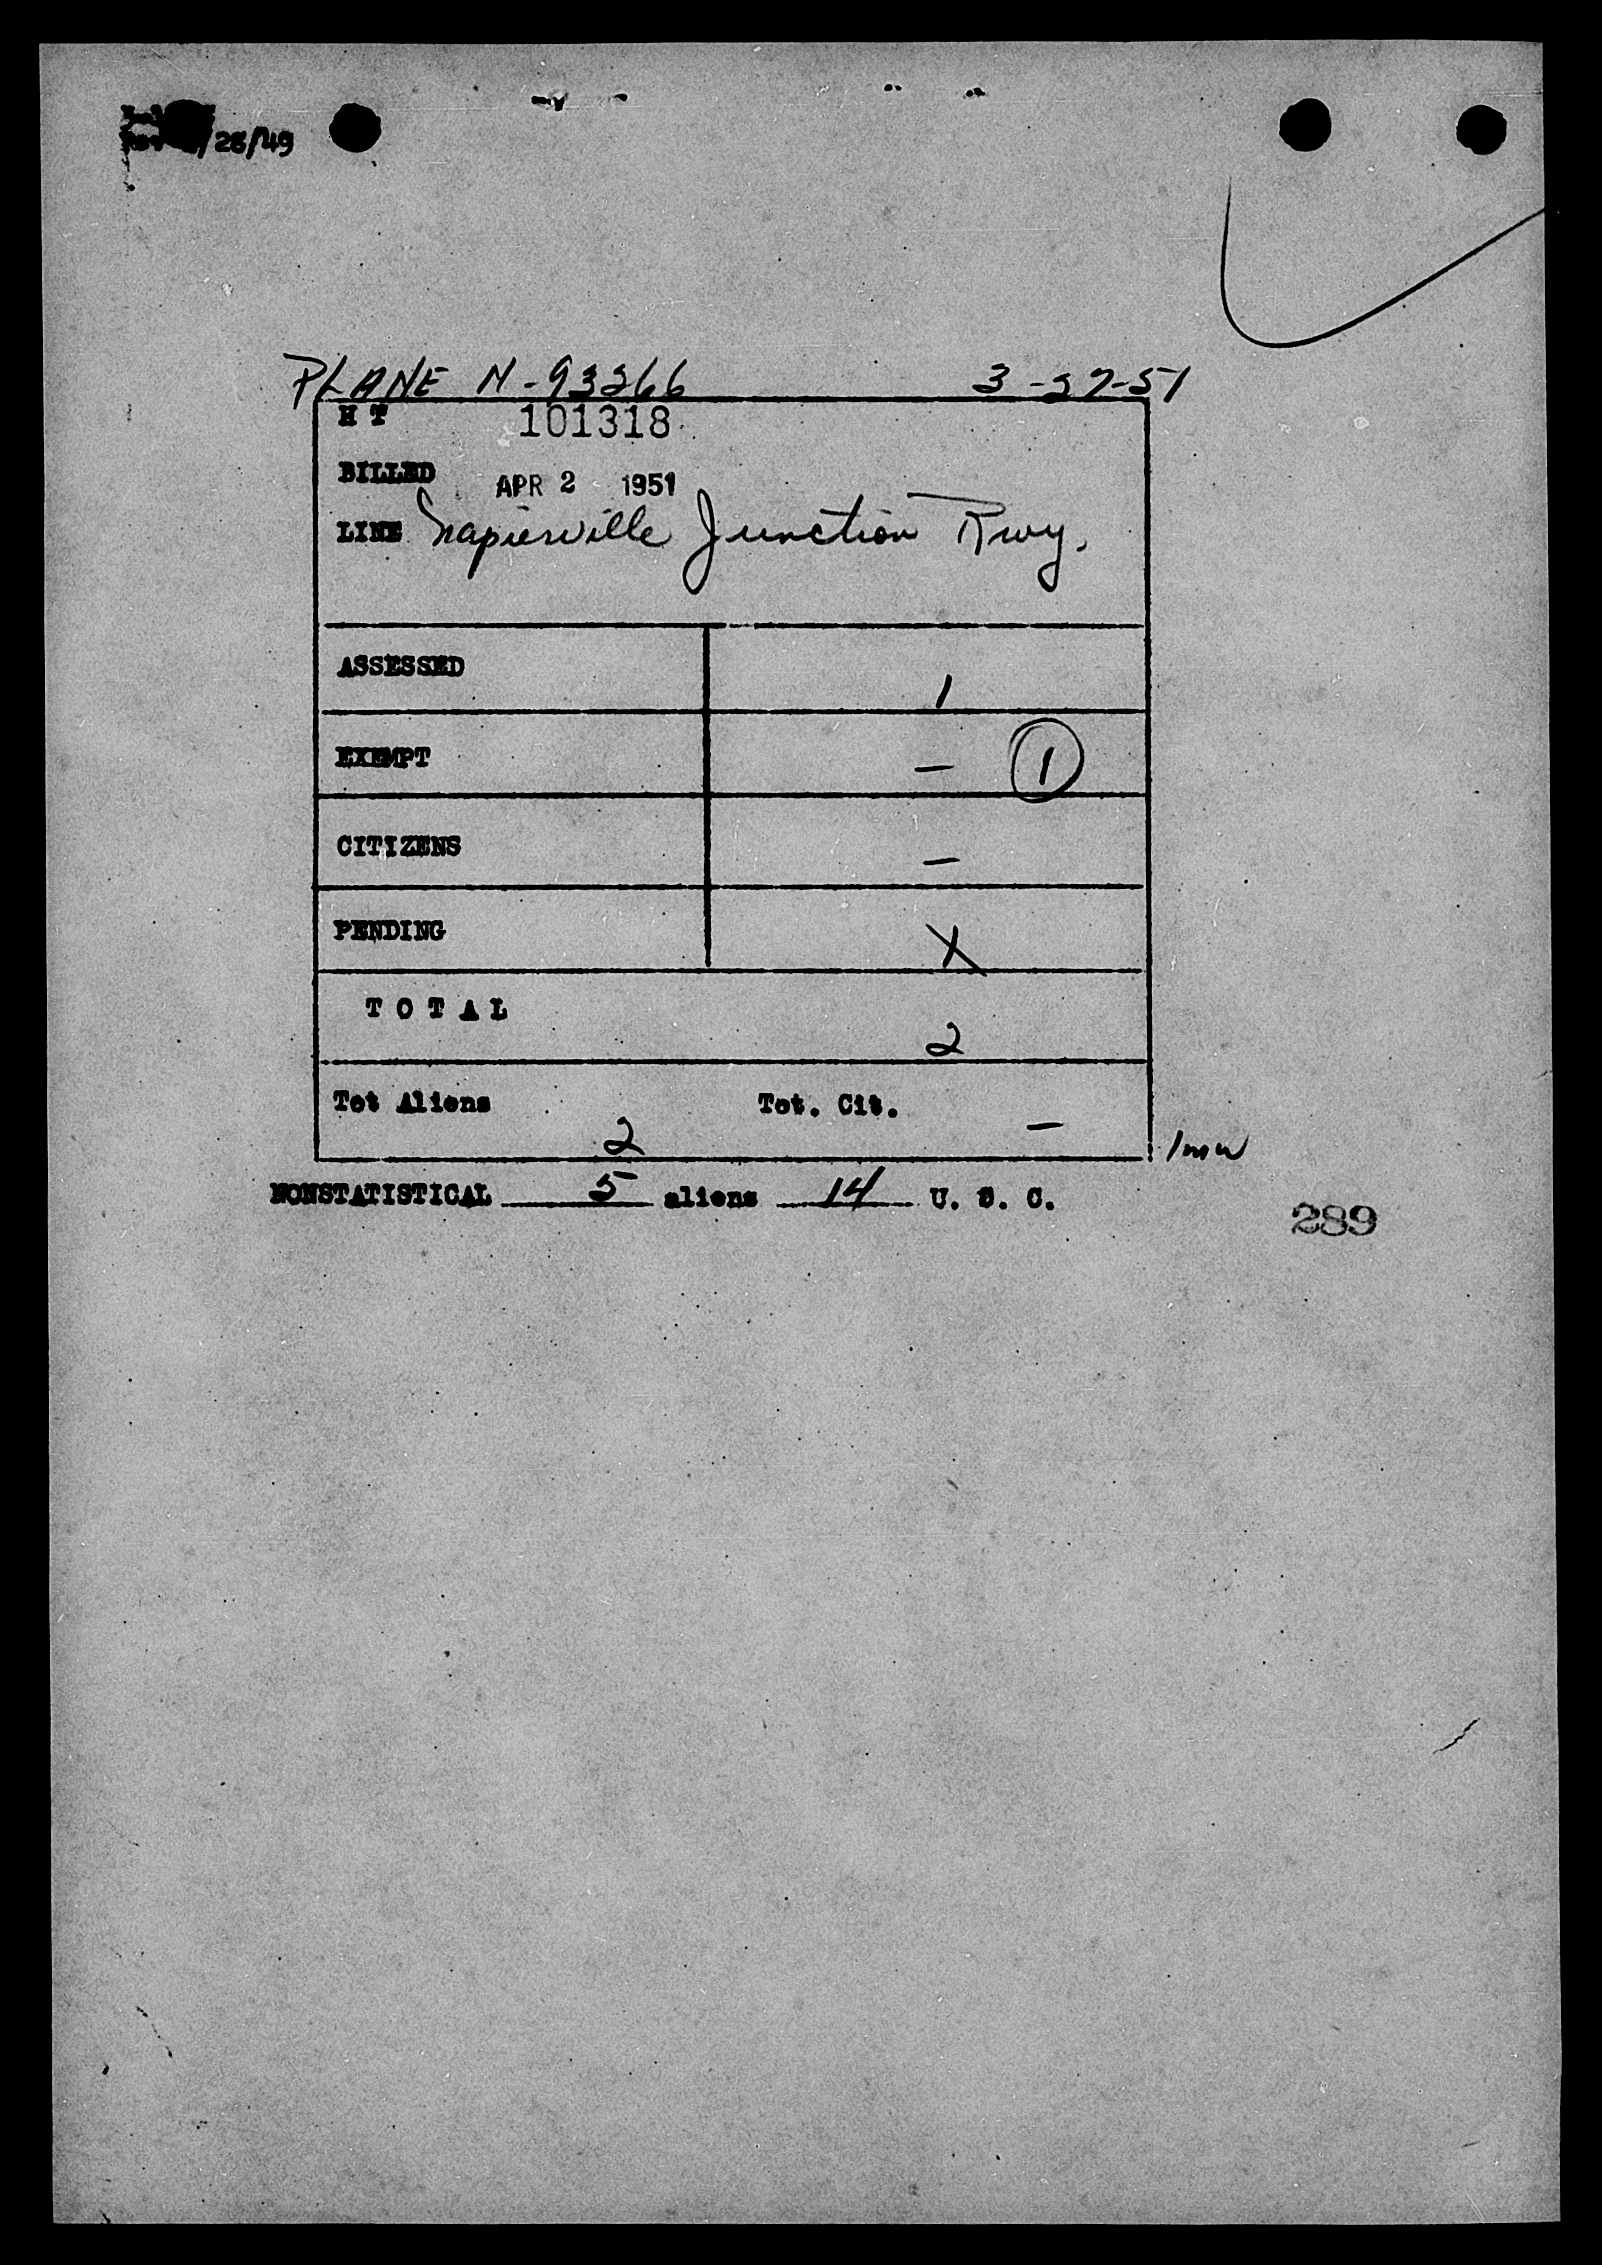 /28/49
PLANE N-93266 3-27-51
H T 101318
BILLED APR 2 1951
LINE Napierville Junction Rwy.
ASSESSED 1
EXEMPT — 1
CITIZENS —
PENDING X
TOTAL 2
Tot Aliens 2 Tot. Cit. —
NONSTATISTICAL 5 aliens 14 U. S. C.
289